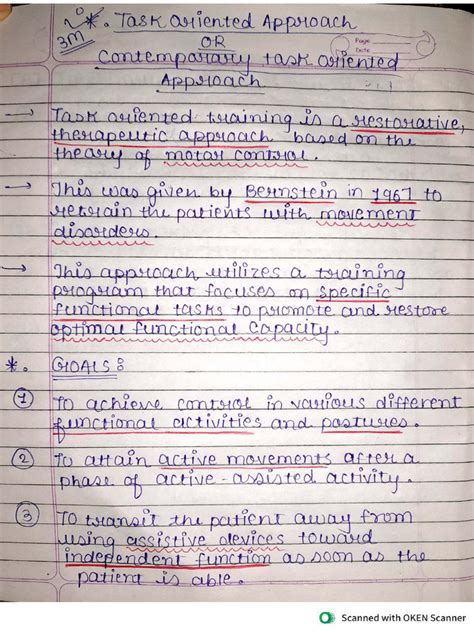 *. Task Oriented Approach
3M
OR
Page
Date
Contemporary task oriented
Approach
→ Task oriented training is a restorative,
therapeutic approach based on the
theory of motor control.
→ This was given by Bernstein in 1967 to
retrain the patients with movement
disorders.
→ This approach utilizes a training
program that focuses on specific
functional tasks to promote and restore
optimal functional capacity.
*. GOALS :
1 To achieve control in various different
functional activities and postures.
2 To attain active movements after a
phase of active-assisted activity.
3 To transit the patient away from
using assistive devices toward
independent function as soon as the
patient is able.
Scanned with OKEN Scanner